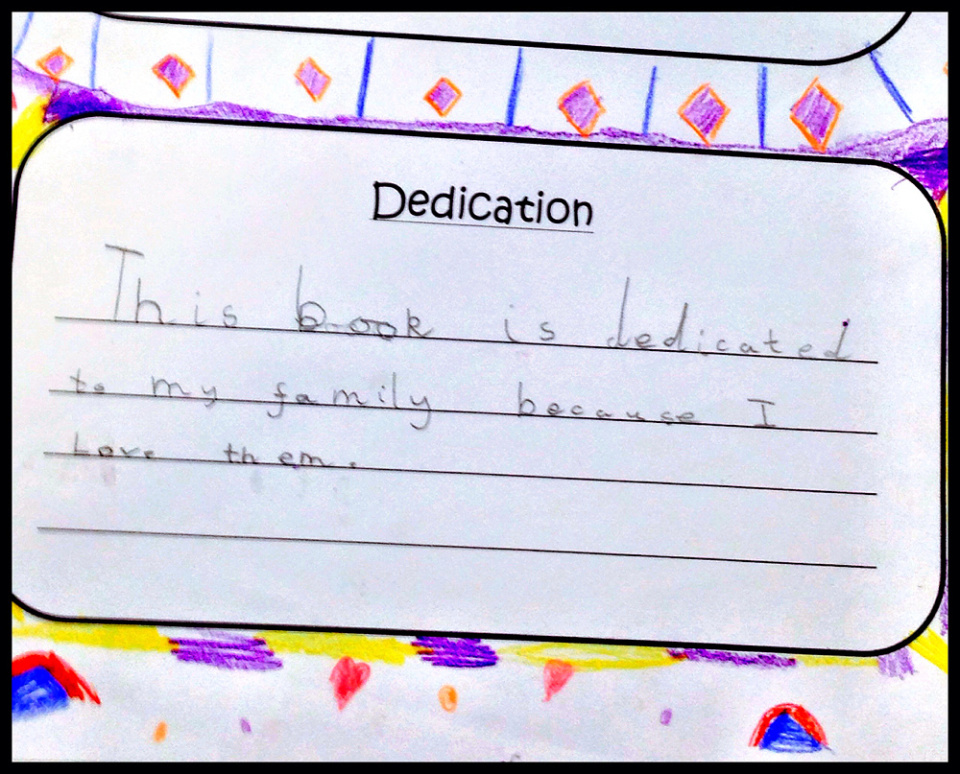 Dedication
This book is dedicated
to my family because I
Love them.